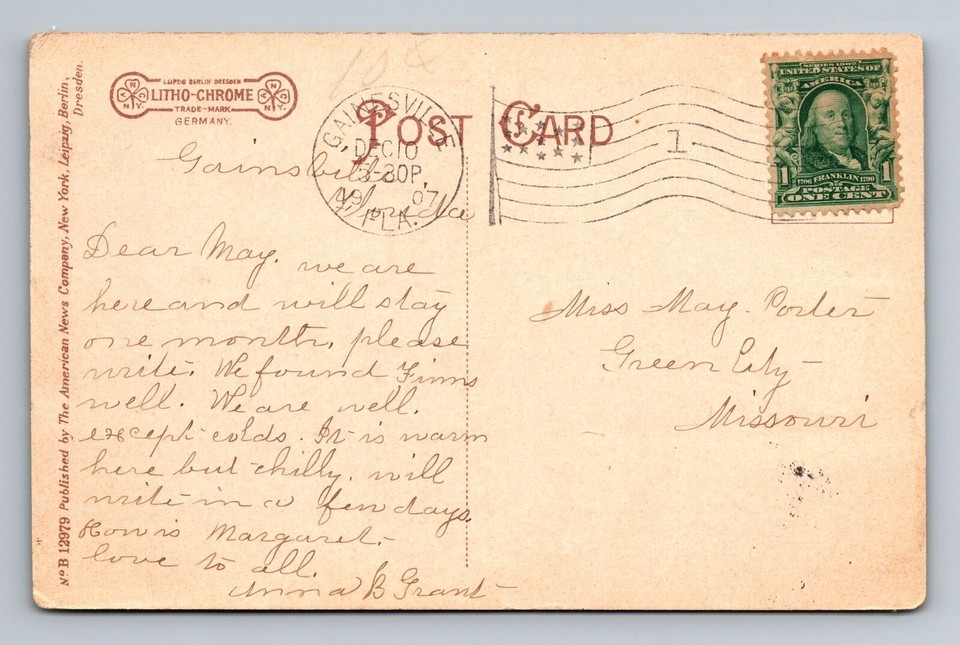 10¢
LEIPZIG BERLIN DRESDEN
LITHO-CHROME
TRADE-MARK
GERMANY.
N N Y.
N N Y.
Post Card
GAINESVILLE
DEC 10
3-30P.
1907
FLA.
1
SERIES 1902
UNITED STATES OF
AMERICA
1706 FRANKLIN 1790
1 1
POSTAGE
ONE CENT
Gainsville
Florida
Dear May, we are
here and will stay
one month, please
write. We found Finns
well. We are well.
except colds. It is warm
here but chilly, will
write in a few days.
How is Margaret.
love to all.
Anna B Grant
Miss May Porter
Green City
Missouri
No B 12979 Published by The American News Company, New York, Leipzig, Berlin,
Dresden.